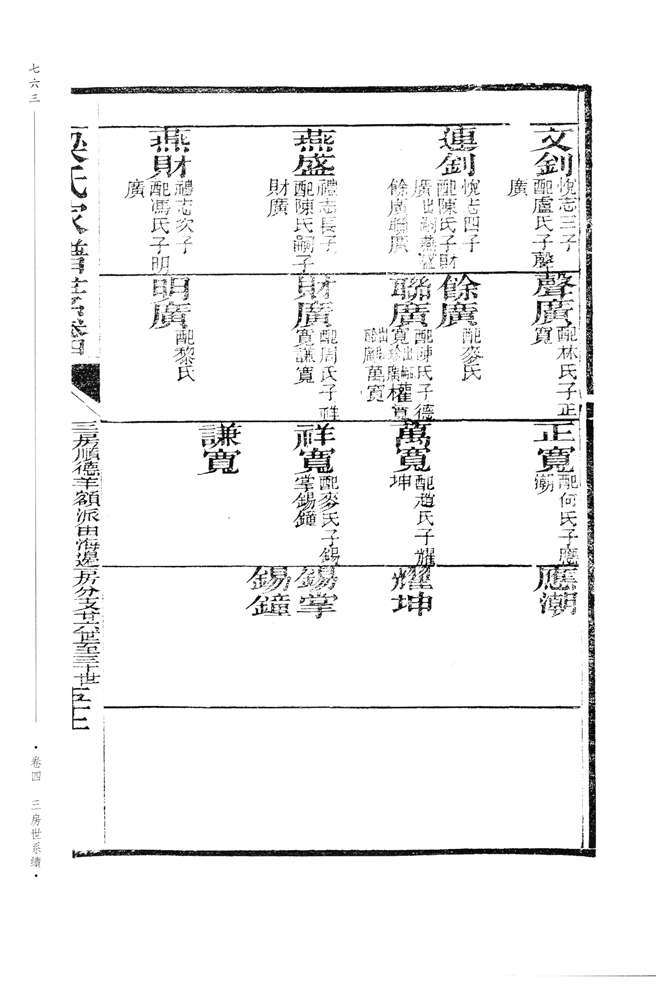 文釗
悅志三子
配盧氏子聲
廣
連釗
悅志四子
配陳氏子財
廣出嗣燕盛
餘廣聯廣
燕盛
禮志長子
配陳氏嗣子
財廣
燕財
禮志次子
配馮氏子明
廣
聲廣
配林氏子正
寬
餘廣
配麥氏
聯廣
配陳氏子德
寬
權寬
萬寬
財廣
配周氏子祥
寬謙寬
明廣
配黎氏
正寬
配何氏子應
潮
萬寬
配趙氏子耀
坤
祥寬
配麥氏子錫
掌錫鐘
謙寬
應潮
耀坤
錫掌
錫鐘
梁氏家譜
三房順德羊額派由海邊房分支廿六世至三十世
七六三
·卷四 三房世系續·